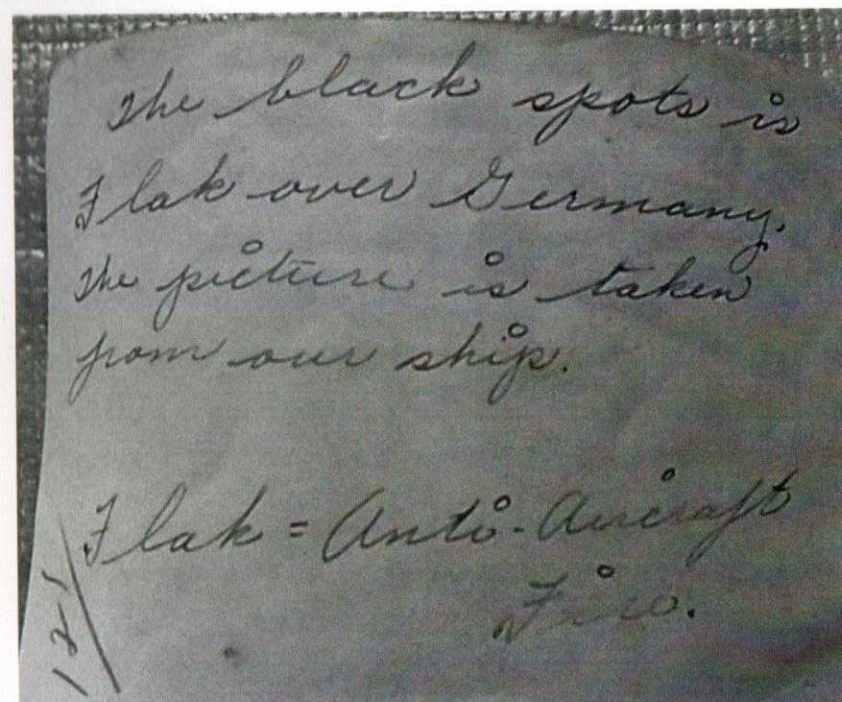 The black spots is
Flak over Germany.
The picture is taken
from our ship.
Flak = Anti-Aircraft
Fire.
121